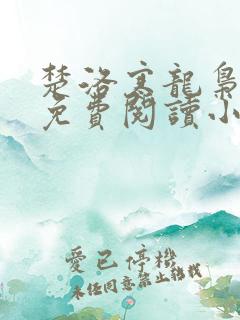 楚洛寒龍梟
免費閱讀小
愛已停機
未經同意禁止轉載